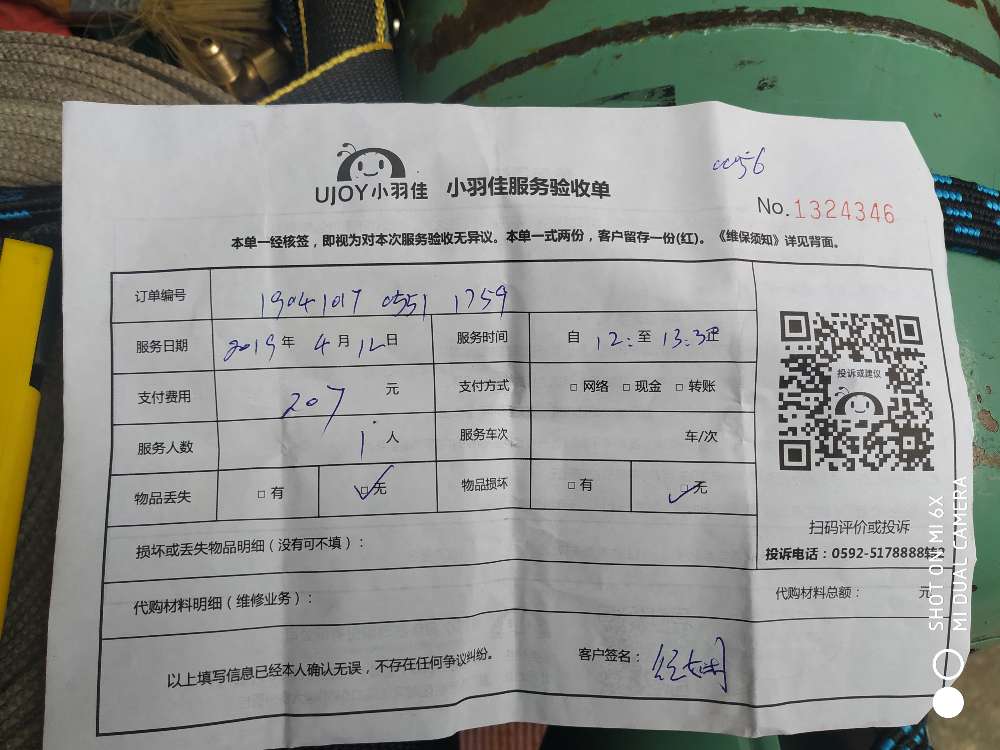 0056
UJOY小羽佳 小羽佳服务验收单
No.1324346
本单一经核签，即视为对本次服务验收无异议。本单一式两份，客户留存一份(红)。《维保须知》详见背面。
订单编号 19041017 0551 1759
服务日期 2019年 4月12日 服务时间 自 12: 至 13:3止
支付费用 207 元 支付方式 □ 网络 □ 现金 □ 转账
服务人数 1 人 服务车次 车/次
物品丢失 □ 有 ☑ 无 物品损坏 □ 有 ☑ 无
投诉或建议
扫码评价或投诉
投诉电话：0592-5178888转2
损坏或丢失物品明细（没有可不填）：
代购材料明细（维修业务）：
代购材料总额： 元
以上填写信息已经本人确认无误，不存在任何争议纠纷。
客户签名：
SHOT ON MI 6X
MI DUAL CAMERA